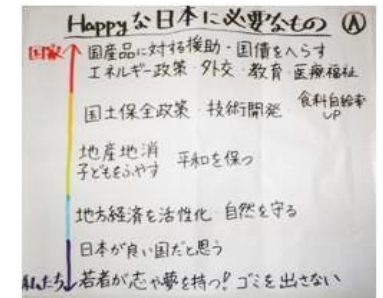 Happyな日本に必要なもの Ⓐ
国家
国産品に対する援助・国債をへらす
エネルギー政策・外交・教育・医療福祉
国土保全政策・技術開発・食料自給率UP
地産地消
子どもをふやす 平和を保つ
地方経済を活性化・自然を守る
日本が良い国だと思う
私たち
若者が志や夢を持つ!ゴミを出さない